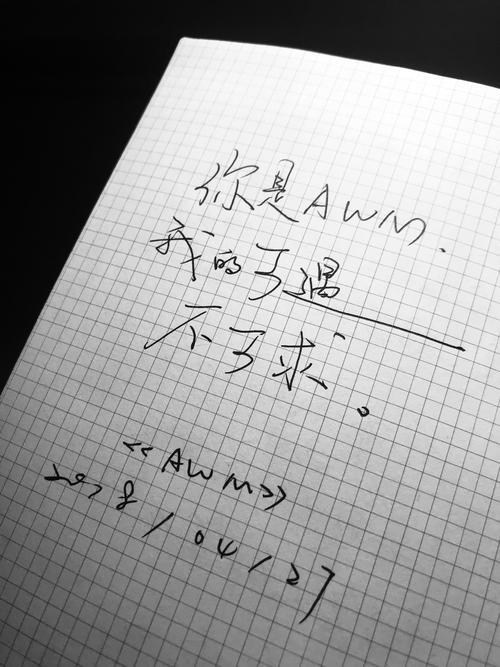 你是AWM.
我的可遇
不可求。
《AWM》
2018/04/27